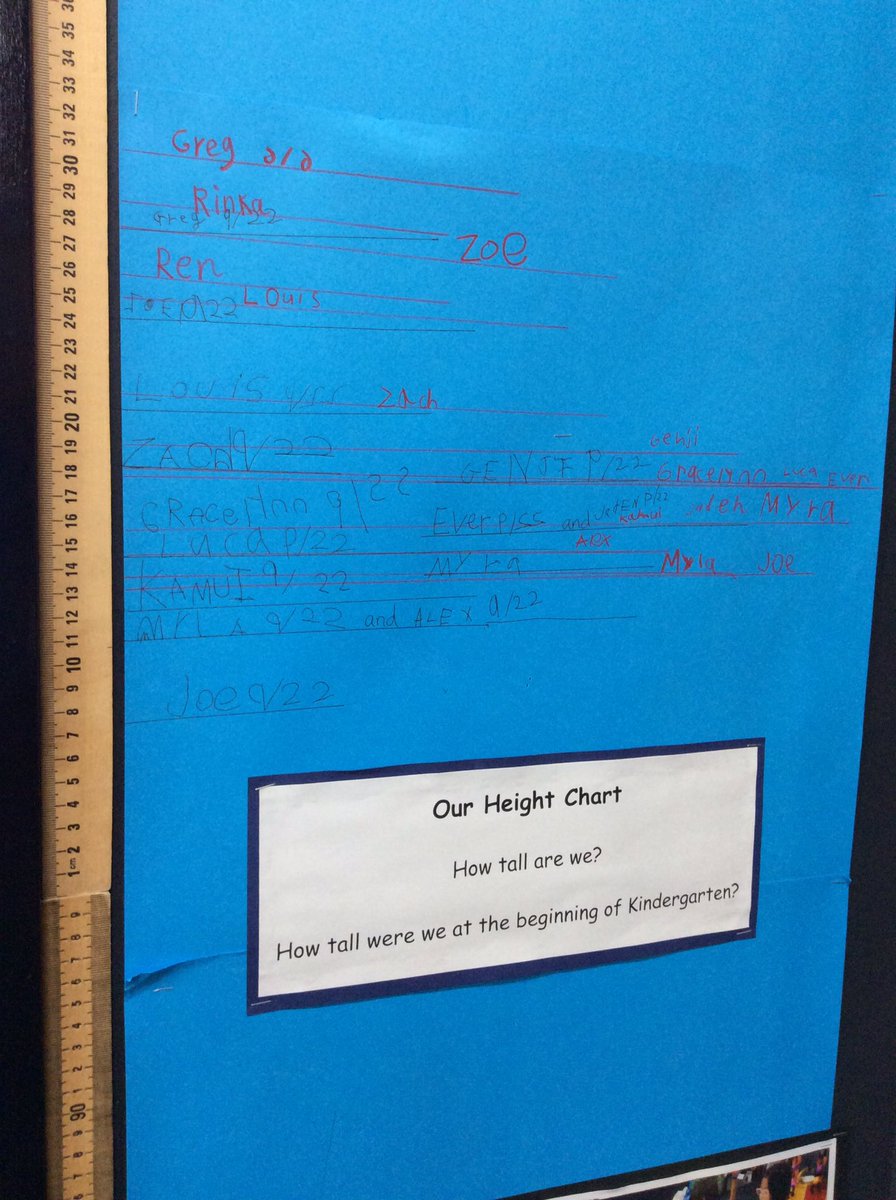 Greg 2/2
Rinka
Greg 9/22
Zoe
Ren
Louis
JOE 9/22
Louis
Zach
9/22
Genji
GENJI 9/22 Gracelynn Luca Ever
GRACElynn 9/22
Ever 9/22 and
Myra
LUCA 9/22
KAMUI 9/22
Myra
Myla Joe
9/22 and ALEX 9/22
Joe 9/22
Our Height Chart
How tall are we?
How tall were we at the beginning of Kindergarten?
36
35
34
33
32
31
30
29
28
27
26
25
24
23
22
21
20
19
18
17
16
15
14
13
12
11
10
9
8
7
6
5
4
3
2
1cm
9
8
7
6
5
4
3
2
1
90
9
8
7